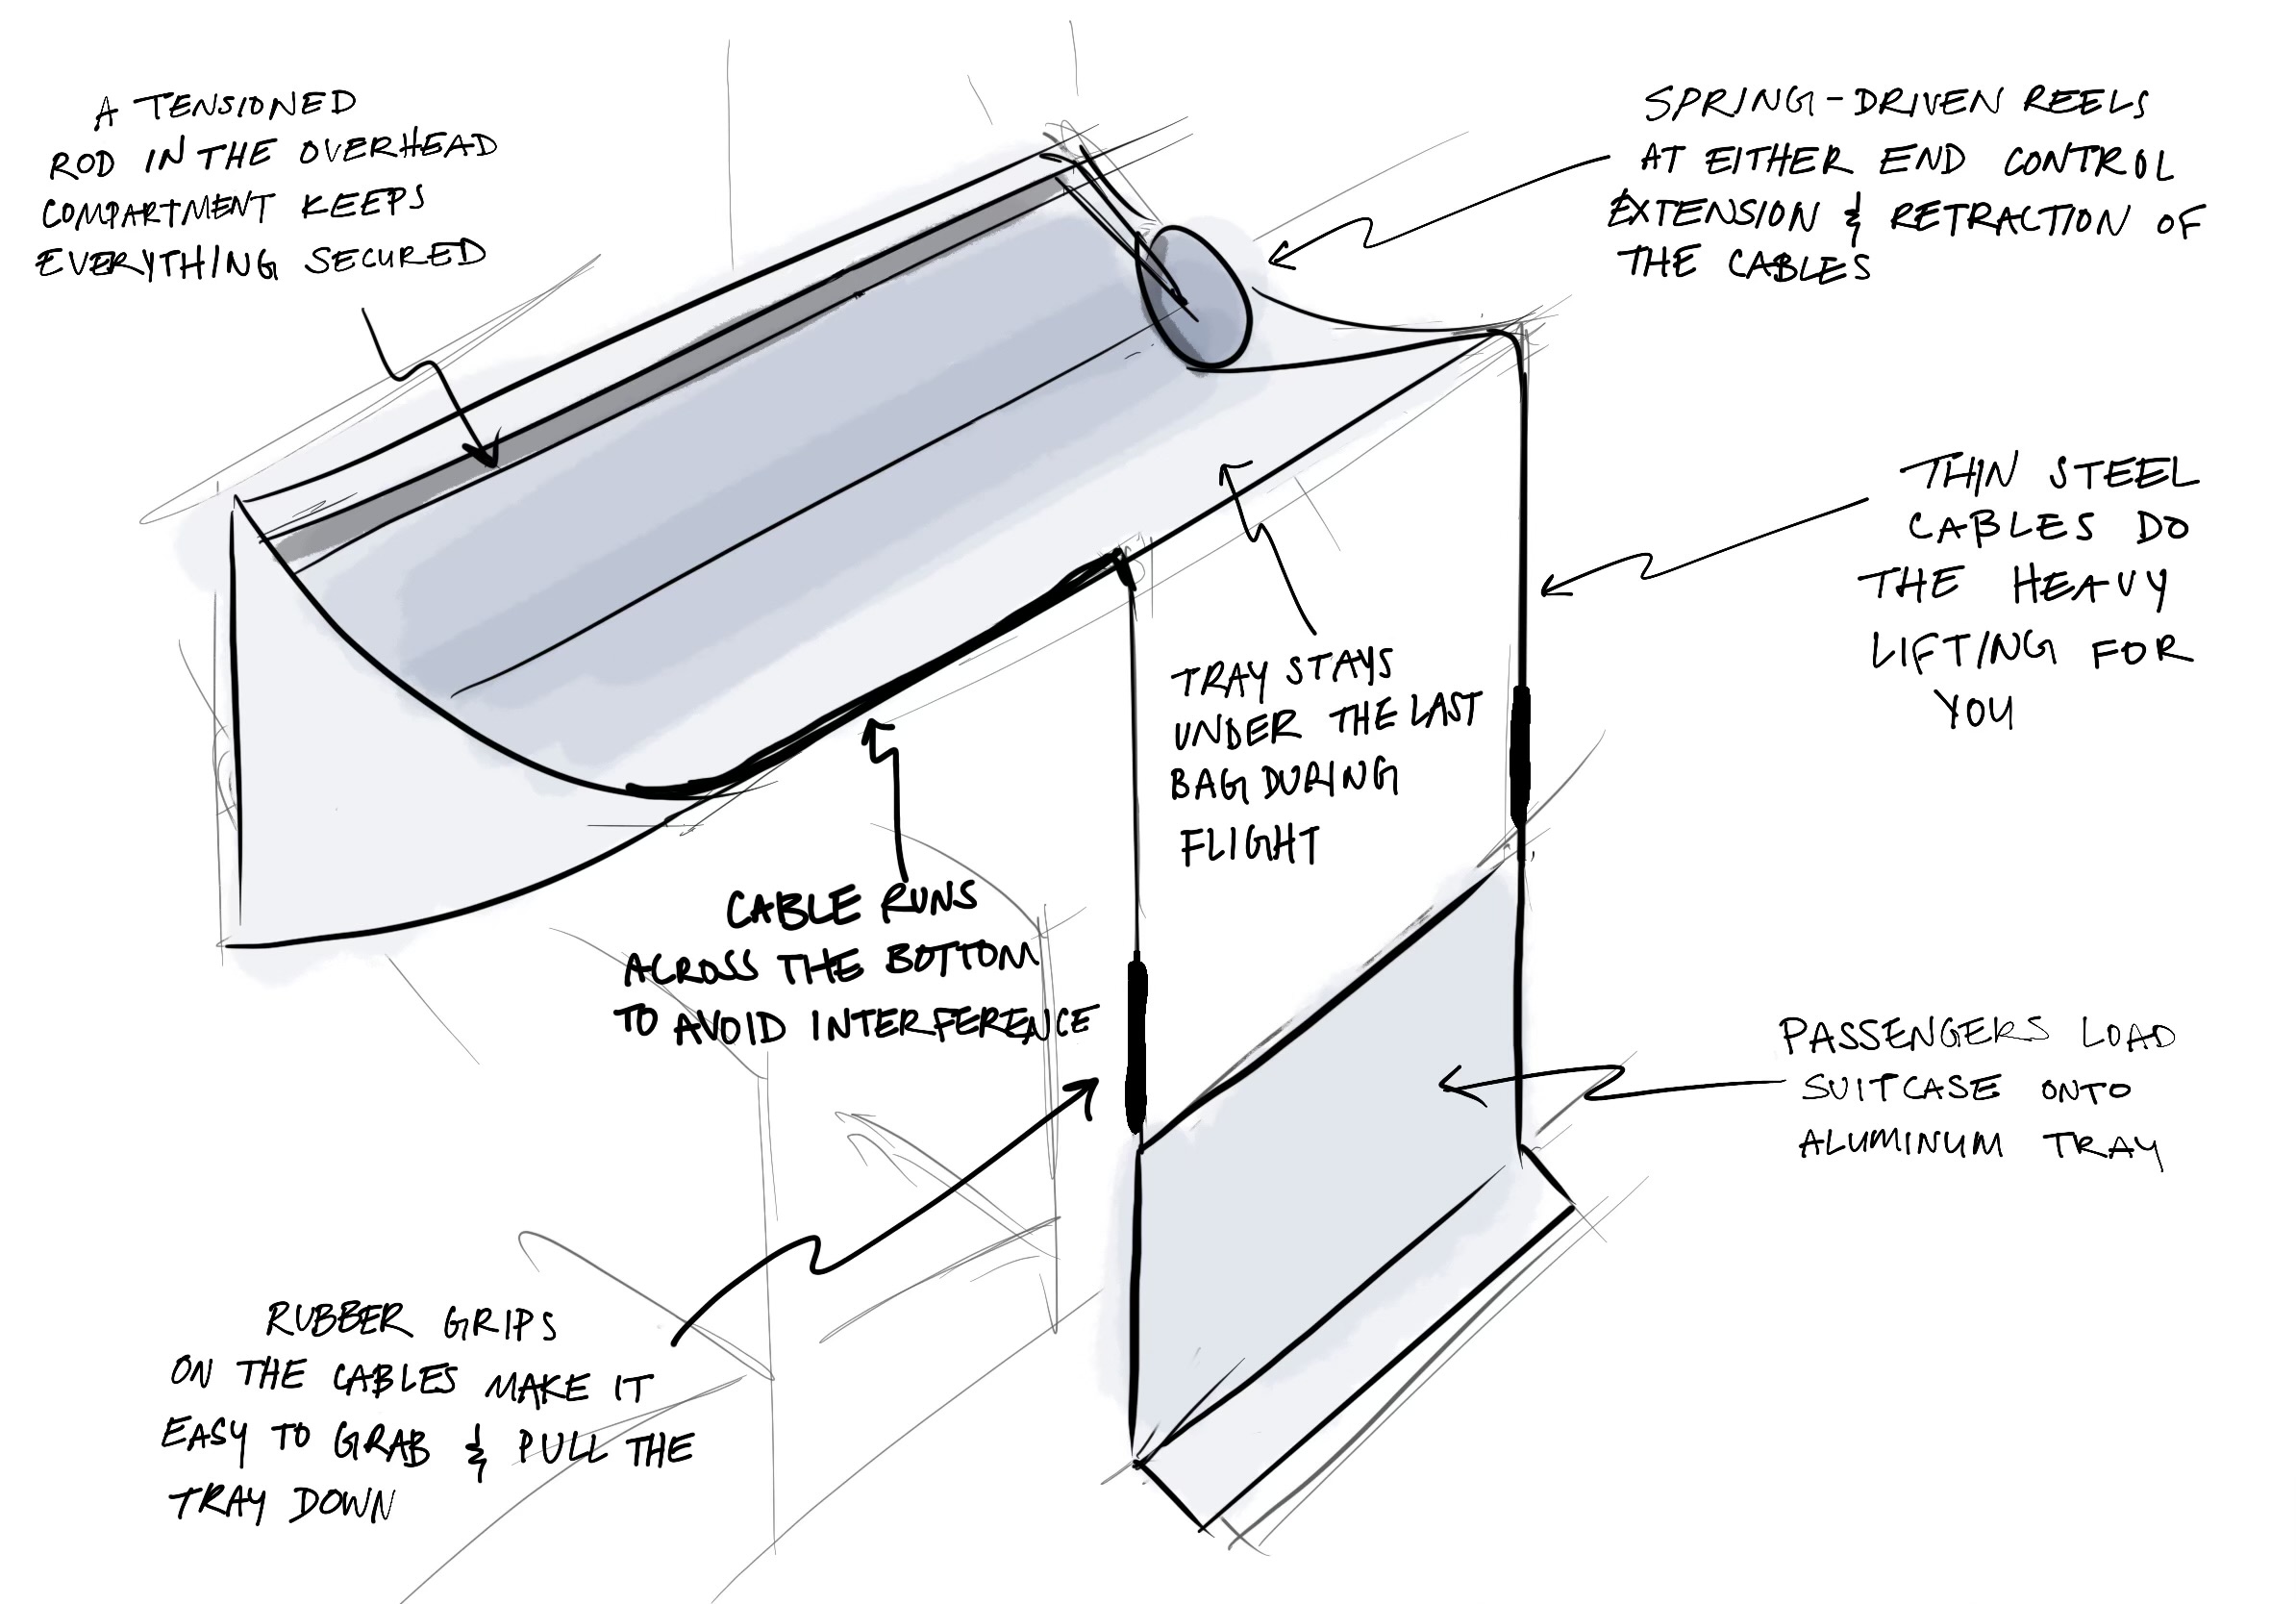 A TENSIONED
ROD IN THE OVERHEAD
COMPARTMENT KEEPS
EVERYTHING SECURED
SPRING-DRIVEN REELS
AT EITHER END CONTROL
EXTENSION & RETRACTION OF
THE CABLES
THIN STEEL
CABLES DO
THE HEAVY
LIFTING FOR
YOU
TRAY STAYS
UNDER THE LAST
BAG DURING
FLIGHT
CABLE RUNS
ACROSS THE BOTTOM
TO AVOID INTERFERENCE
PASSENGERS LOAD
SUITCASE ONTO
ALUMINUM TRAY
RUBBER GRIPS
ON THE CABLES MAKE IT
EASY TO GRAB & PULL THE
TRAY DOWN